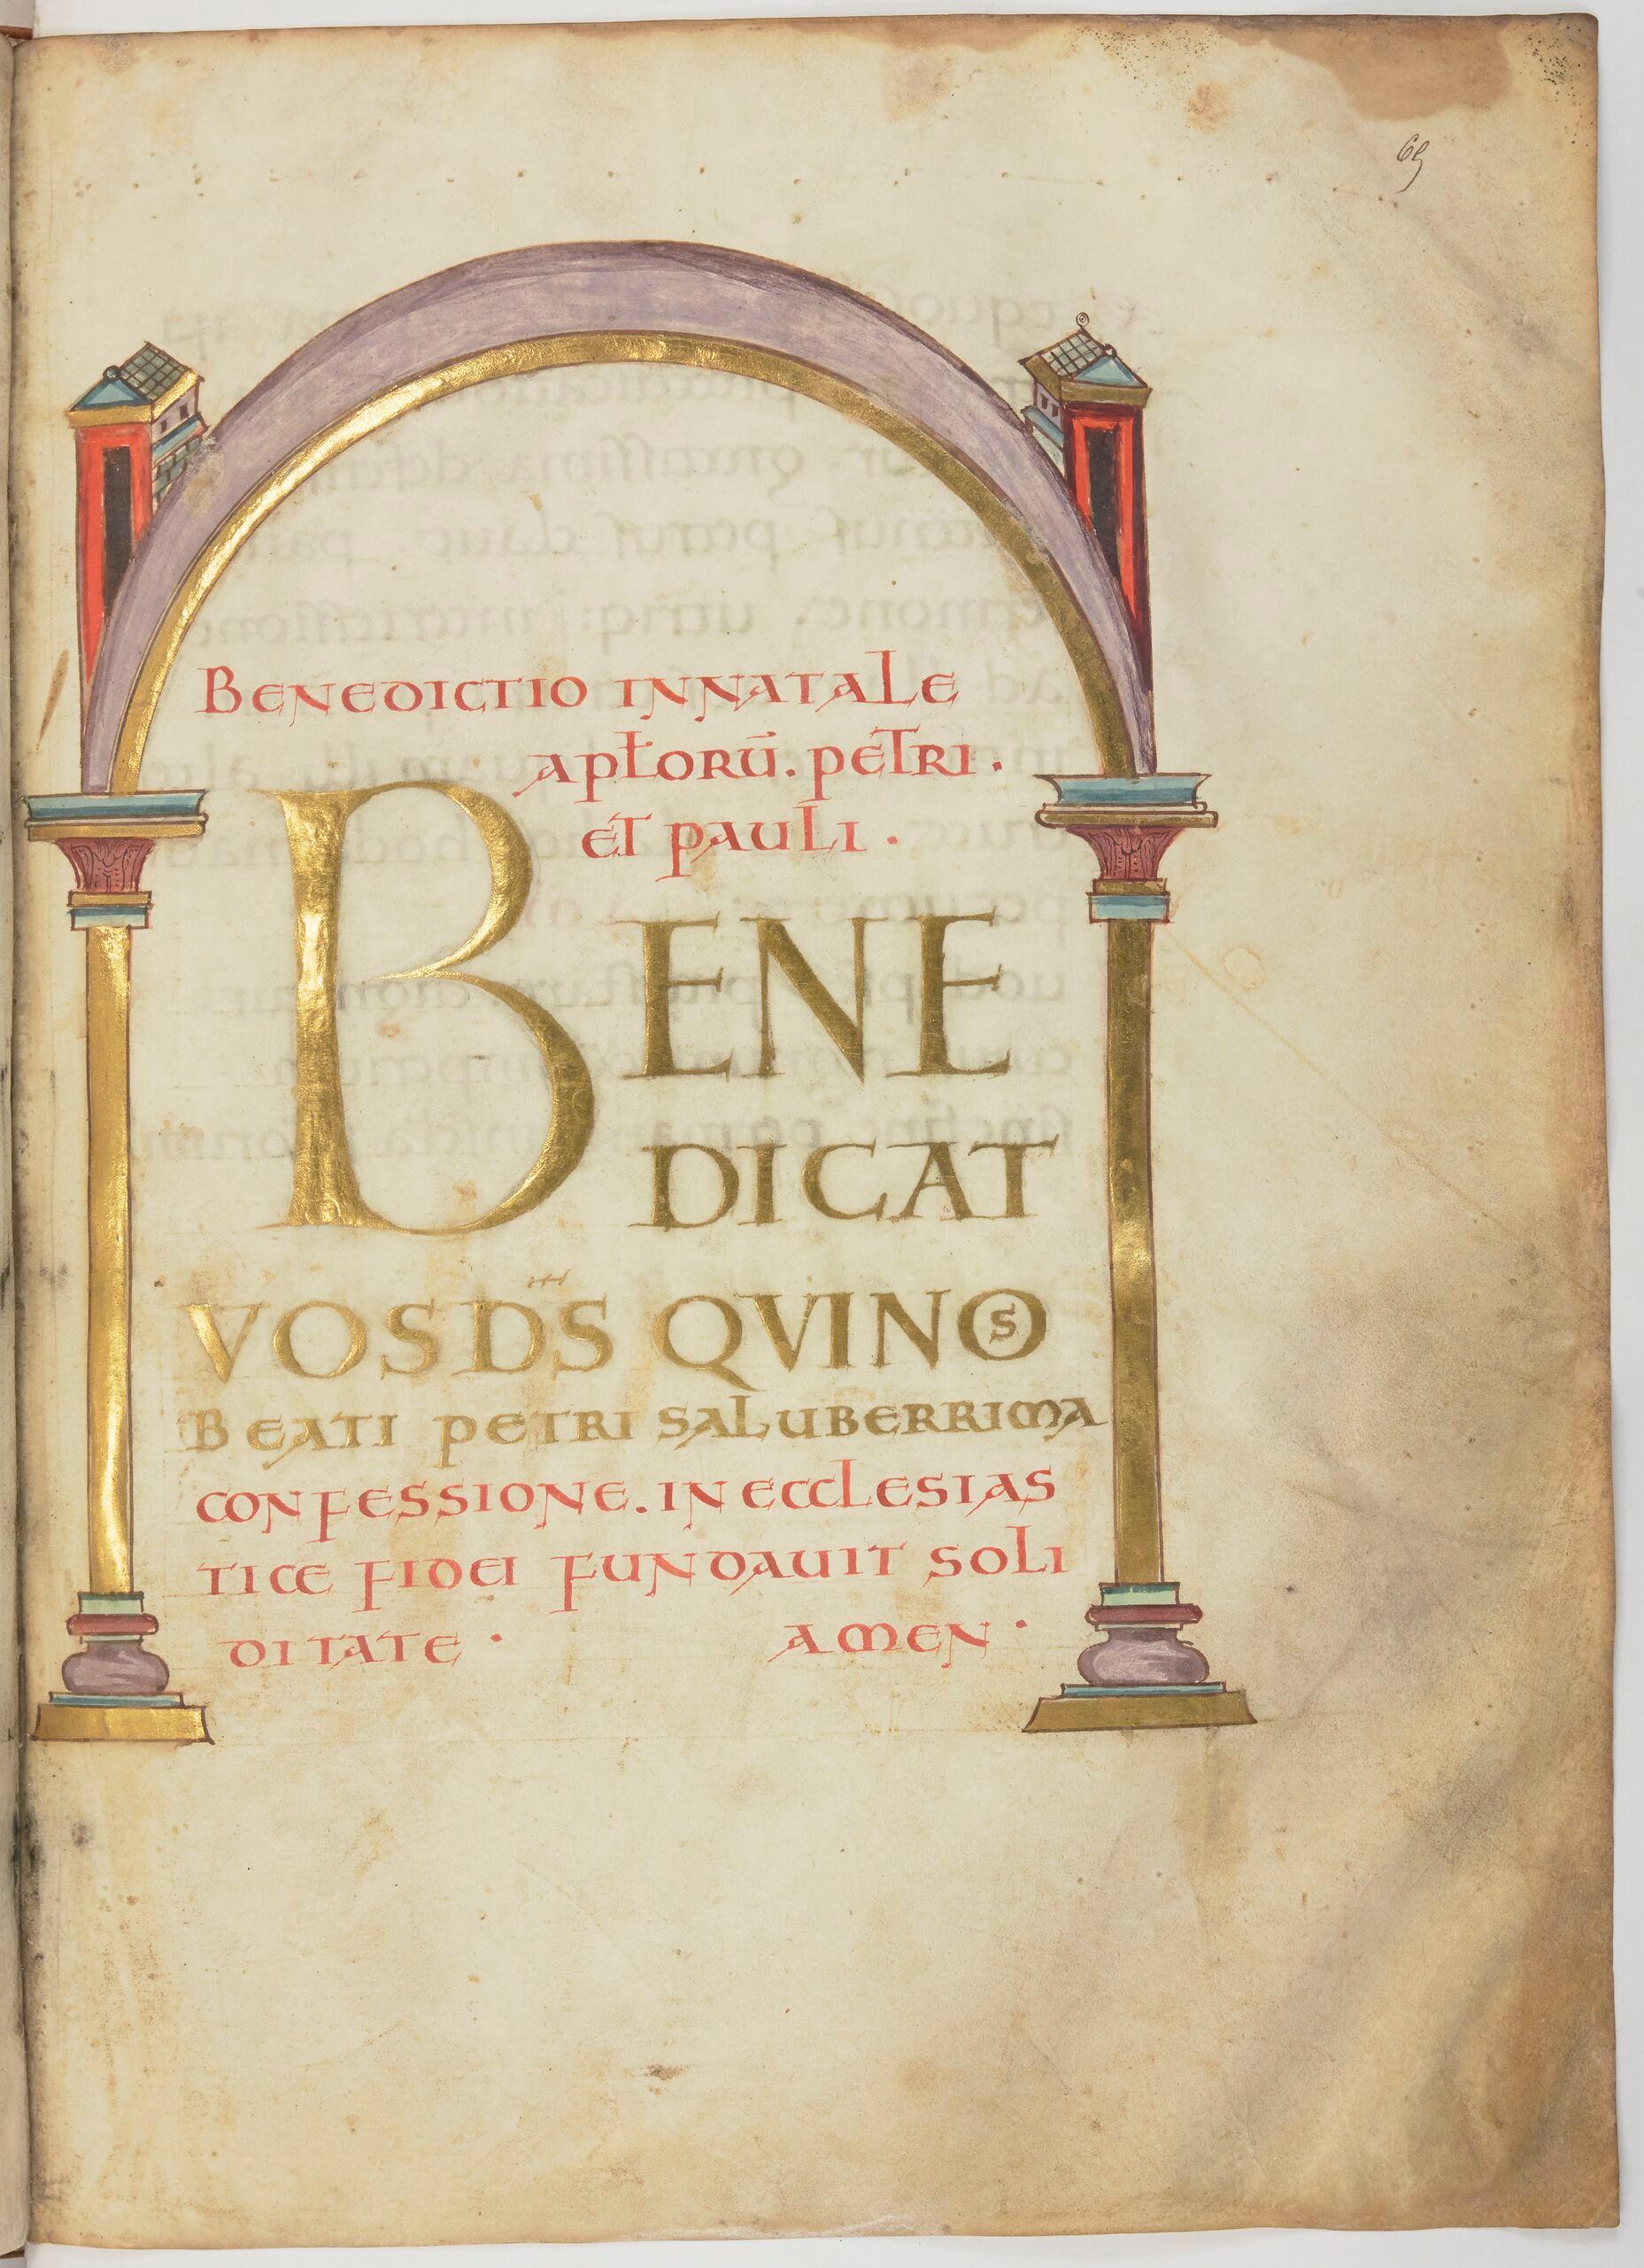 69
BENEDICTIO INNATALE
APŁORŪ. PETRI.
ET PAULI.
BENE
DICAT
VOS D̄S QVI NOS
BEATI PETRI SALUBERRIMA
CONFESSIONE. IN ECCLESIAS
TICE FIDEI FUNDAUIT SOLI
DITATE· AMEN·